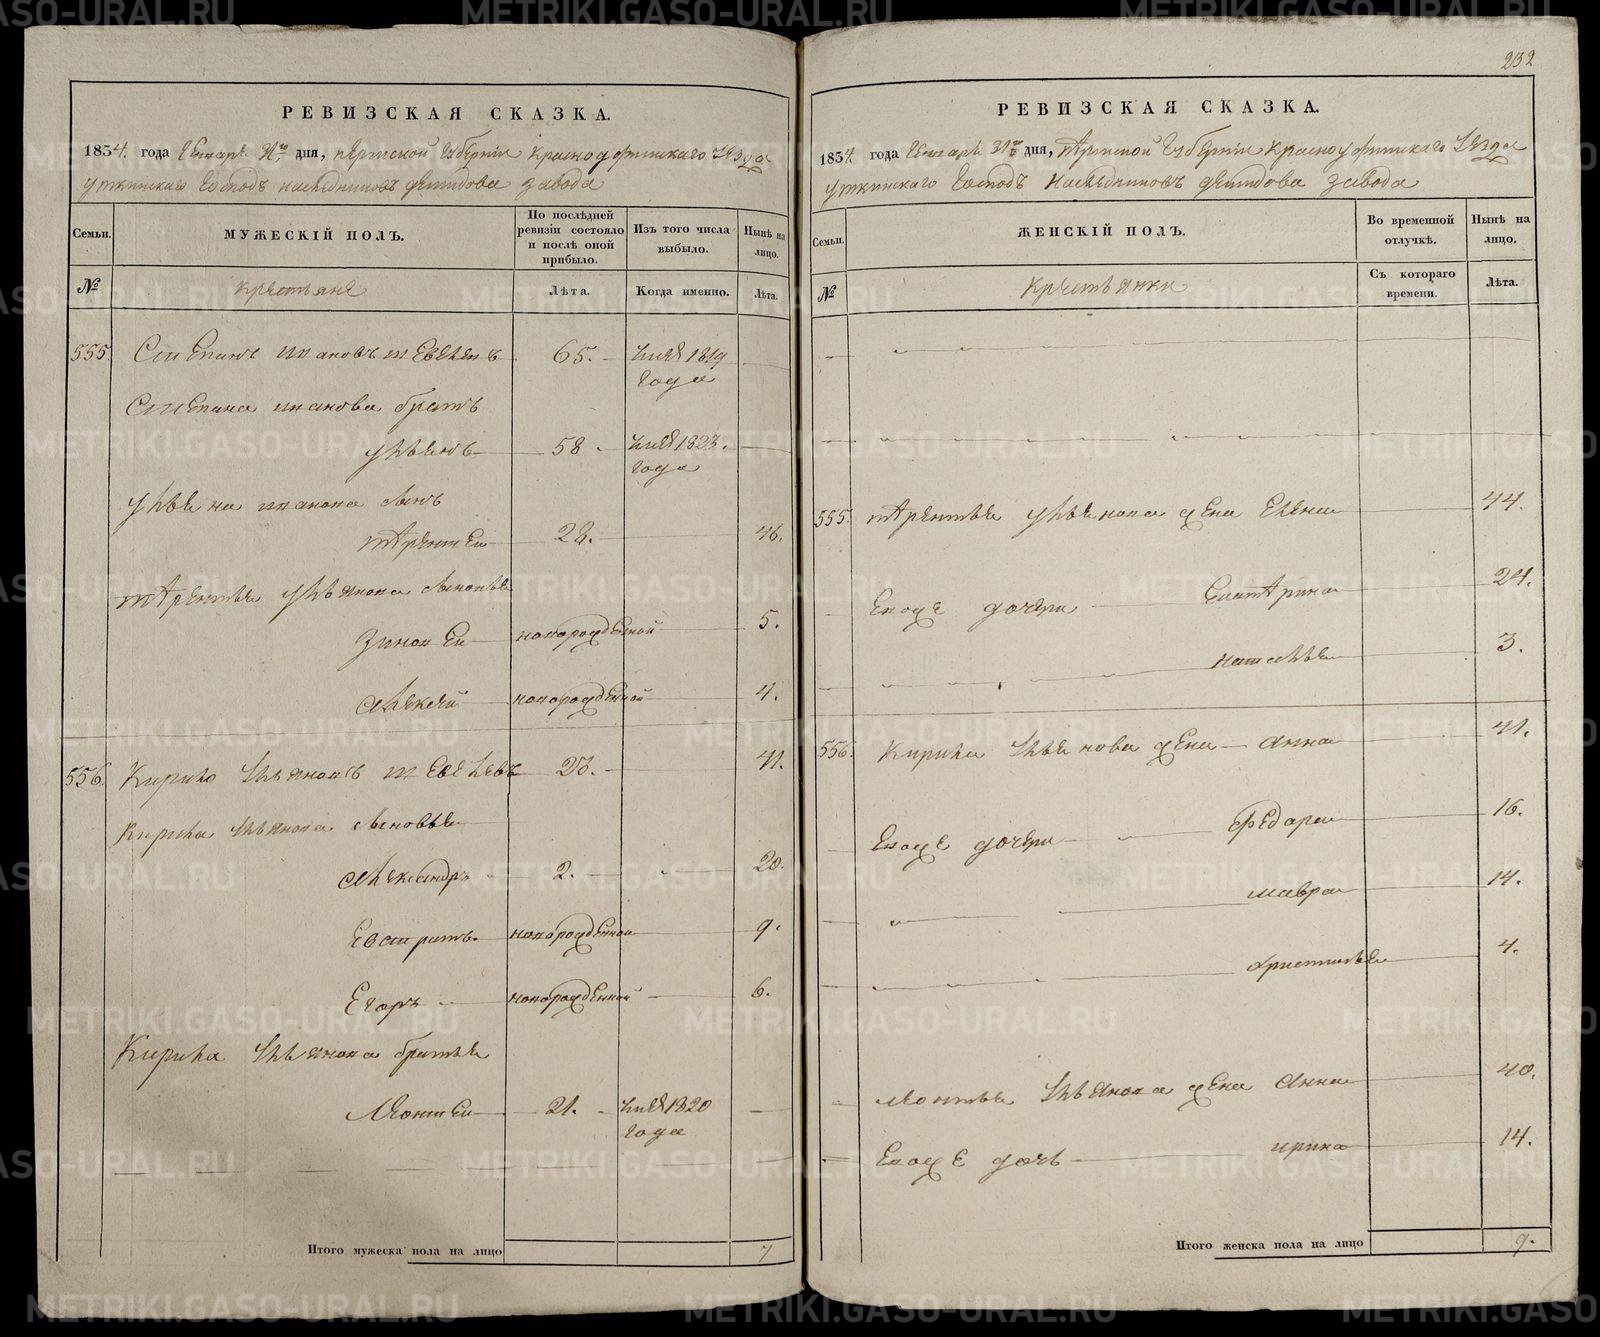 232
РЕВИЗСКАЯ СКАЗКА.
1834. года Генваря 31го дня, Пермской Губернии Красноуфимскаго Уѣзда
Уткинскаго Господъ наслѣдниковъ Демидова завода
Семьи.
МУЖЕСКІЙ ПОЛЪ.
По послѣдней ревизіи состояло и послѣ оной прибыло.
Изъ того числа выбыло.
Нынѣ на лицо.
№
Крестьяне
Лѣта.
Когда именно.
Лѣта.
555. Степанъ Ивановъ 65. 1819
года
Степана Иванова братъ
Ульянъ 58. 1823.
года
Ульяна Иванова сынъ
Терентей 28. 46.
Терентья Ульянова сыновья
Зиновей новорожденной 5.
Алексей новорожденной 4.
556. Кирило Ульяновъ 23. 41.
Кирила Ульянова сыновья
Александръ 2. 20.
Евстратъ новорожденной 9.
Егоръ новорожденной 6.
Кирила Ульянова братья
Леонтей 21. 1820
года
Итого мужеска пола на лицо 7
РЕВИЗСКАЯ СКАЗКА.
1834. года Генваря 31го дня, Пермской Губернии Красноуфимскаго Уѣзда
Уткинскаго Господъ Наслѣдниковъ Демидова завода
Семьи.
ЖЕНСКІЙ ПОЛЪ.
Во временной отлучкѣ.
Нынѣ на лицо.
№
Крестьянки
Съ котораго времени.
Лѣта.
555. Терентья Ульянова жена Елена 44.
Ево же дочери Екатерина 24.
Наталья 3.
556. Кирила Ульянова жена Анна 41.
Ево же дочери Федора 16.
Мавра 14.
Христинья 4.
Леонтья Ульянова жена Анна 40.
Ево же дочь Ирина 14.
Итого женска пола на лицо 9.
METRIKI.GASO-URAL.RU